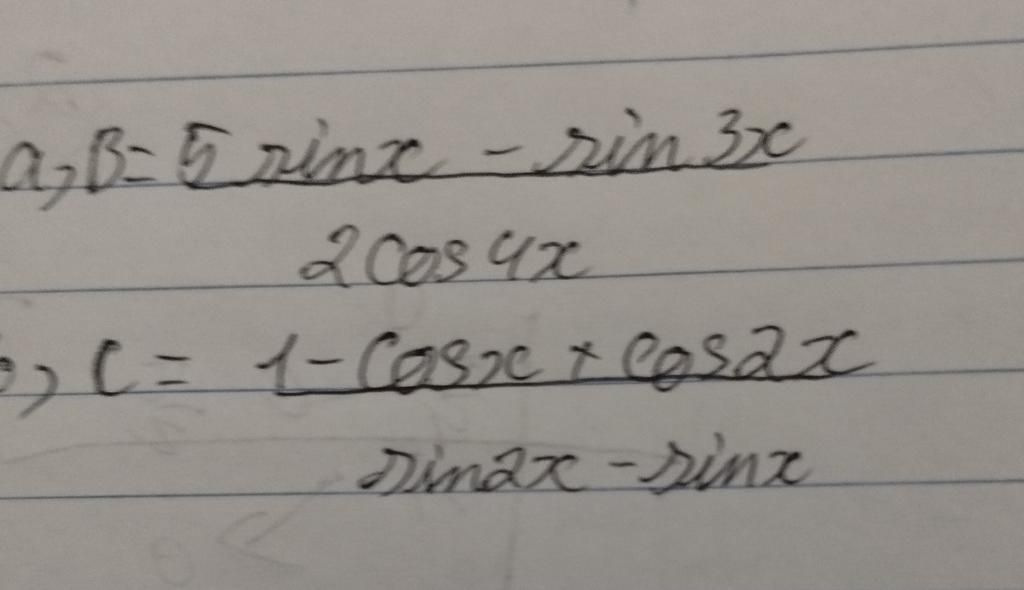 a, B = 5 sinx - sin 3x
2 cos 4x
, C = 1 - cosx + cos2x
sin2x - sinx